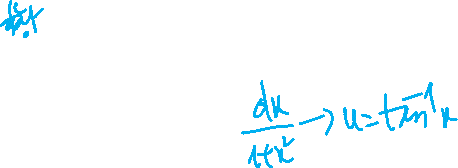 dx/(1+x²) → u = tan⁻¹x